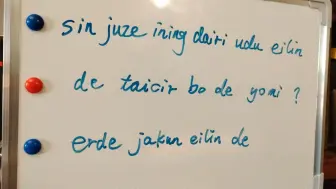 sin juze ining dairi udu eilin
de taicir bo de yomi ?
erde jakun eilin de